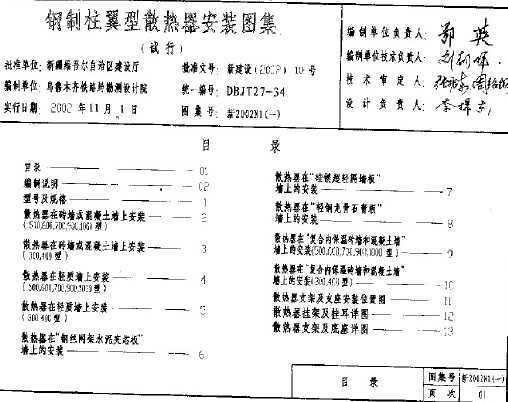 钢制柱翼型散热器安装图集
(试行)
批准单位: 新疆维吾尔自治区建设厅
批准文号: 新建设(2002)10号
编制单位: 乌鲁木齐铁路局勘测设计院
统一编号: DBJT27-54
实行日期: 2002年11月1日
图集号: 新2002N1(一)
编制单位负责人:
编制单位技术负责人:
技术审定人:
设计负责人:
目录
目录 01
编制说明 02
型号及规格 1
散热器在砖墙或混凝土墙上安装 2
散热器在砖墙或混凝土墙上安装 3
(300,400型)
散热器在轻质墙上安装 4
散热器在轻质墙上安装 5
(300,400型)
散热器在"钢丝网架水泥夹芯板"
墙上的安装 6
散热器在"硅镁超轻隔墙板"
墙上的安装 7
散热器在"轻钢龙骨石膏板"
墙上的安装 8
散热器在"复合内保温砖墙和混凝土墙"
墙上的安装(500,600,700,900,1000型) 9
散热器在"复合内保温砖墙和混凝土墙"
墙上的安装(300,400型) 10
散热器支架及支座安装位置图 11
散热器挂架及挂耳详图 12
散热器支架及底座详图 13
目录
图集号 新2002N1(一)
页次 01